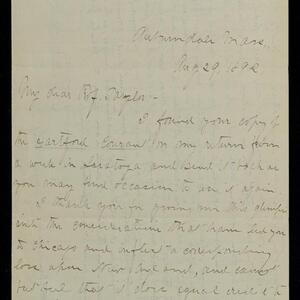 Auburndale Mass.
Aug. 29, 1892
My dear Prof. Taylor -
I found your copy of
the Hartford Courant on my return from
a week in Saratoga and send it back as
you may find occasion to use it again.
I thank you for giving me this glimpse
into the considerations that have led you
to Chicago and inflict a corresponding
loss upon New England, and cannot
but feel that it does equal credit to